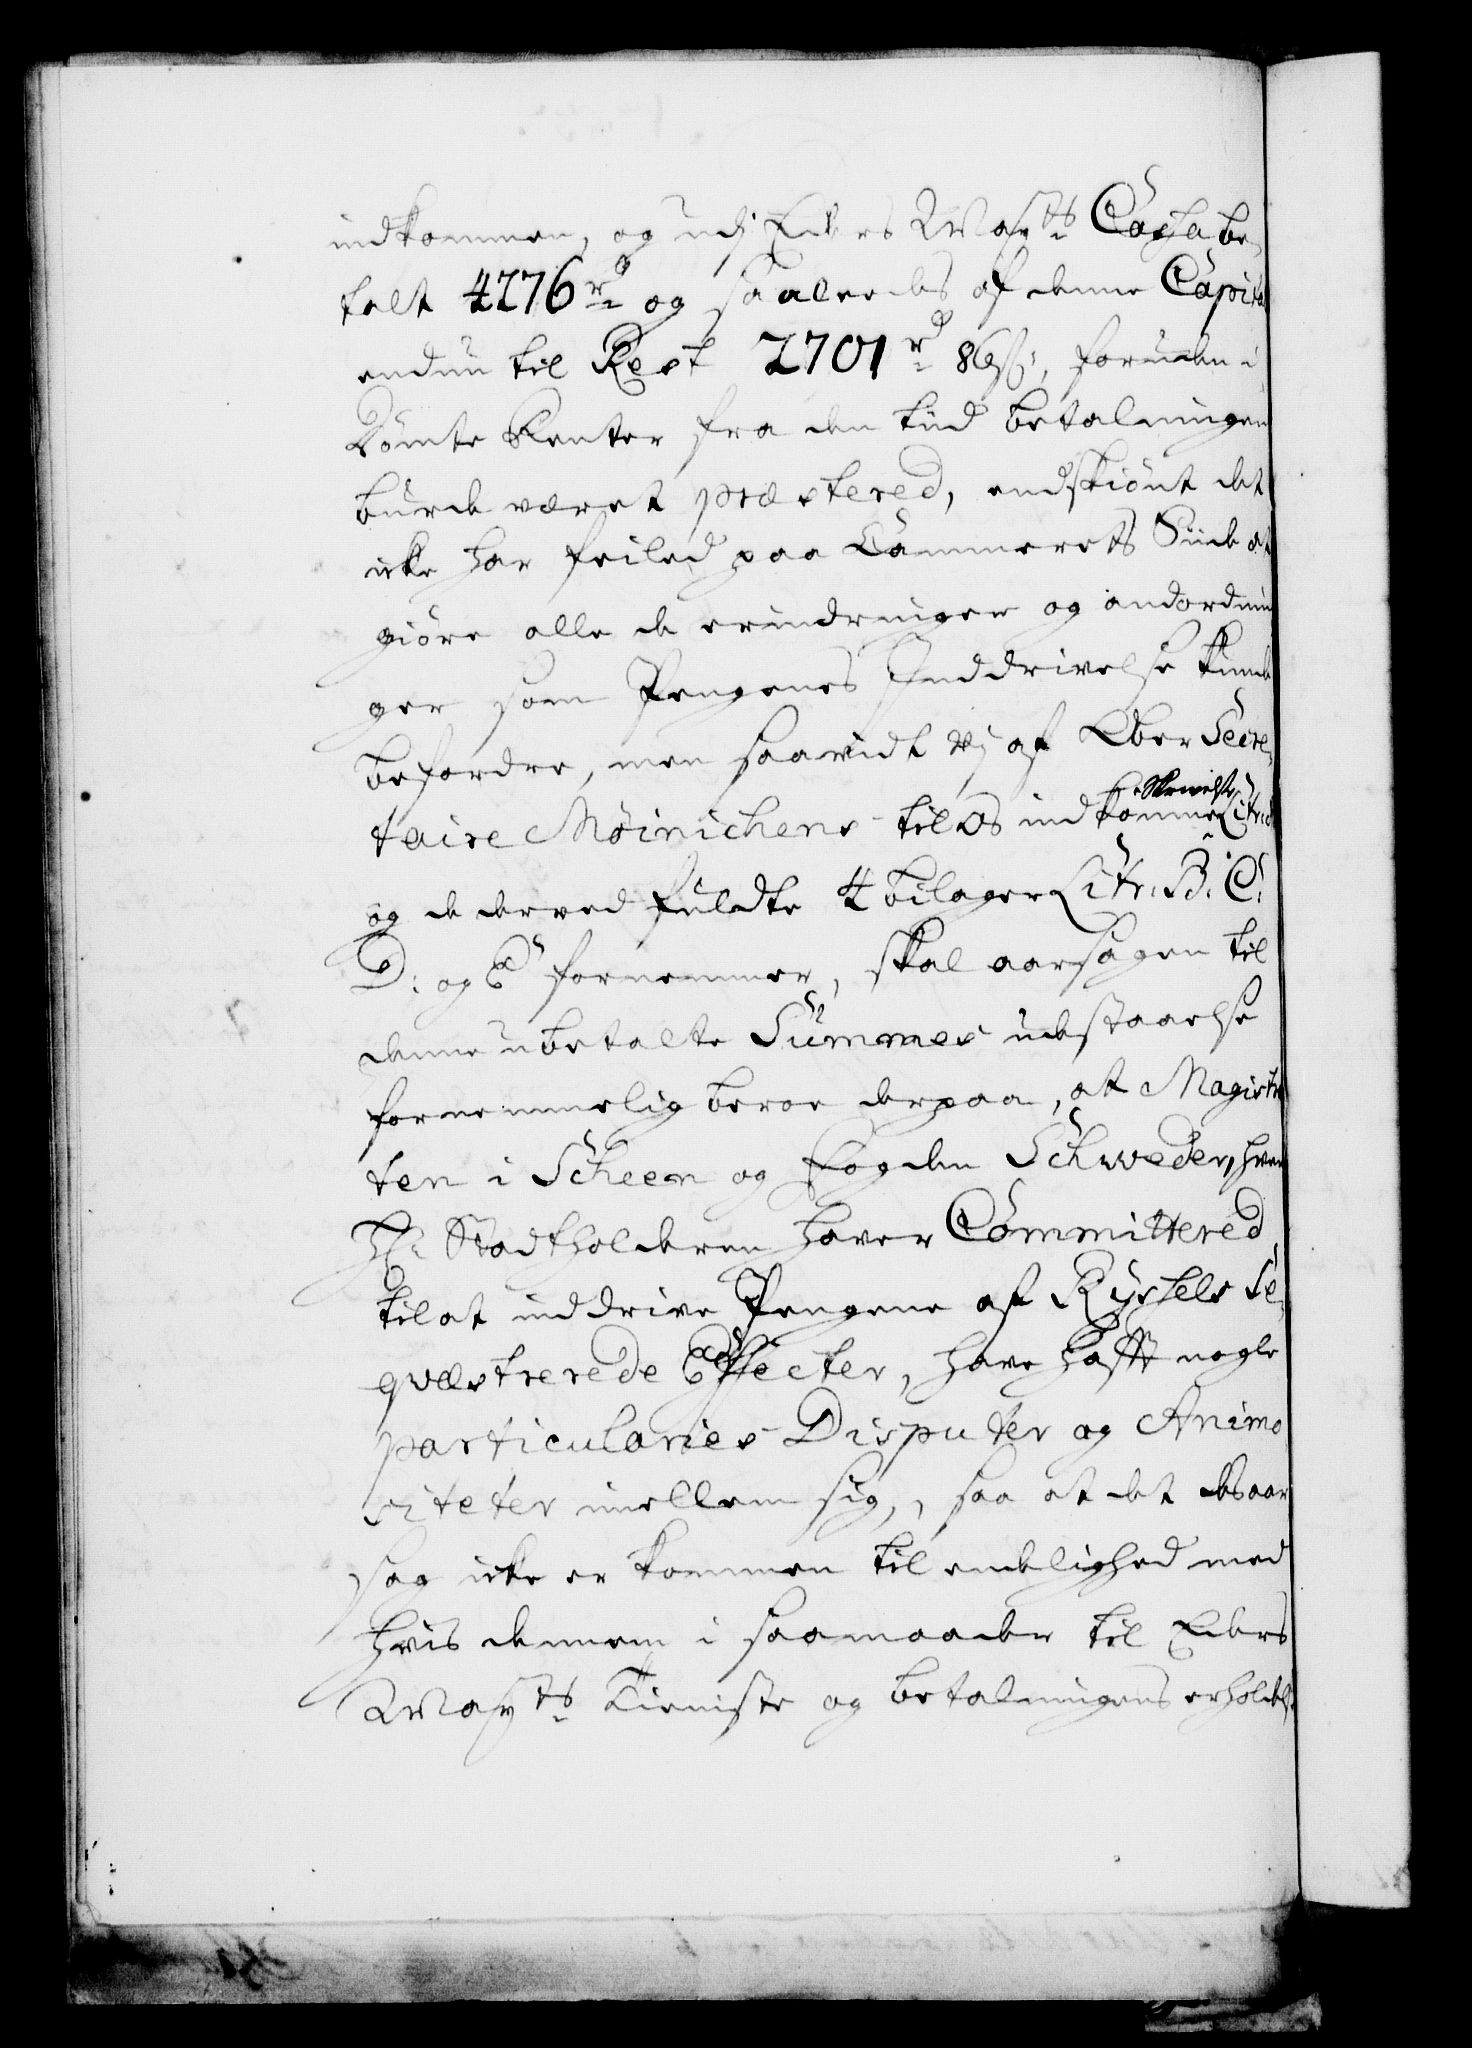 indkommen, og udj Eders May:ts Cassa be-
talt 4276 rd og saaledes af denne Capital
endnu til Rest 2701 rd 86 s:, foruden i
Dömte Renter fra den tiid betalningen
burde været præstered, endskiönt det
icke har feiled paa Cammerets Siide at
giöre alle de erindringer og andordnin
ger som Pengenes Inddrivelse kunde
befordre, men saavidt vj af Ober Secre-
taire Möinichens til os indkomne Skrivelse Litr: A
og de derved fuldte 4 bilager Litr: B: C:
D: og E fornemmer, skal aarsagen til
denne ubetalte Summes udestaaelse
fornemmelig beroe derpaa, at Magistra
ten i Scheen og Fogden Schweder, hvem
Hr: Stadtholderen haver Committered
til at inddrive Pengene af Ryssels Se-
qvæstrerede Effecter, have hafft nogle
particulaires Disputer og Animo
siteter imellem sig, saa at det desaar
sag icke er kommen til endelighed med
hvis dennem i saamaader til Eders
May:ts Tieniste og betalningens erholdelse